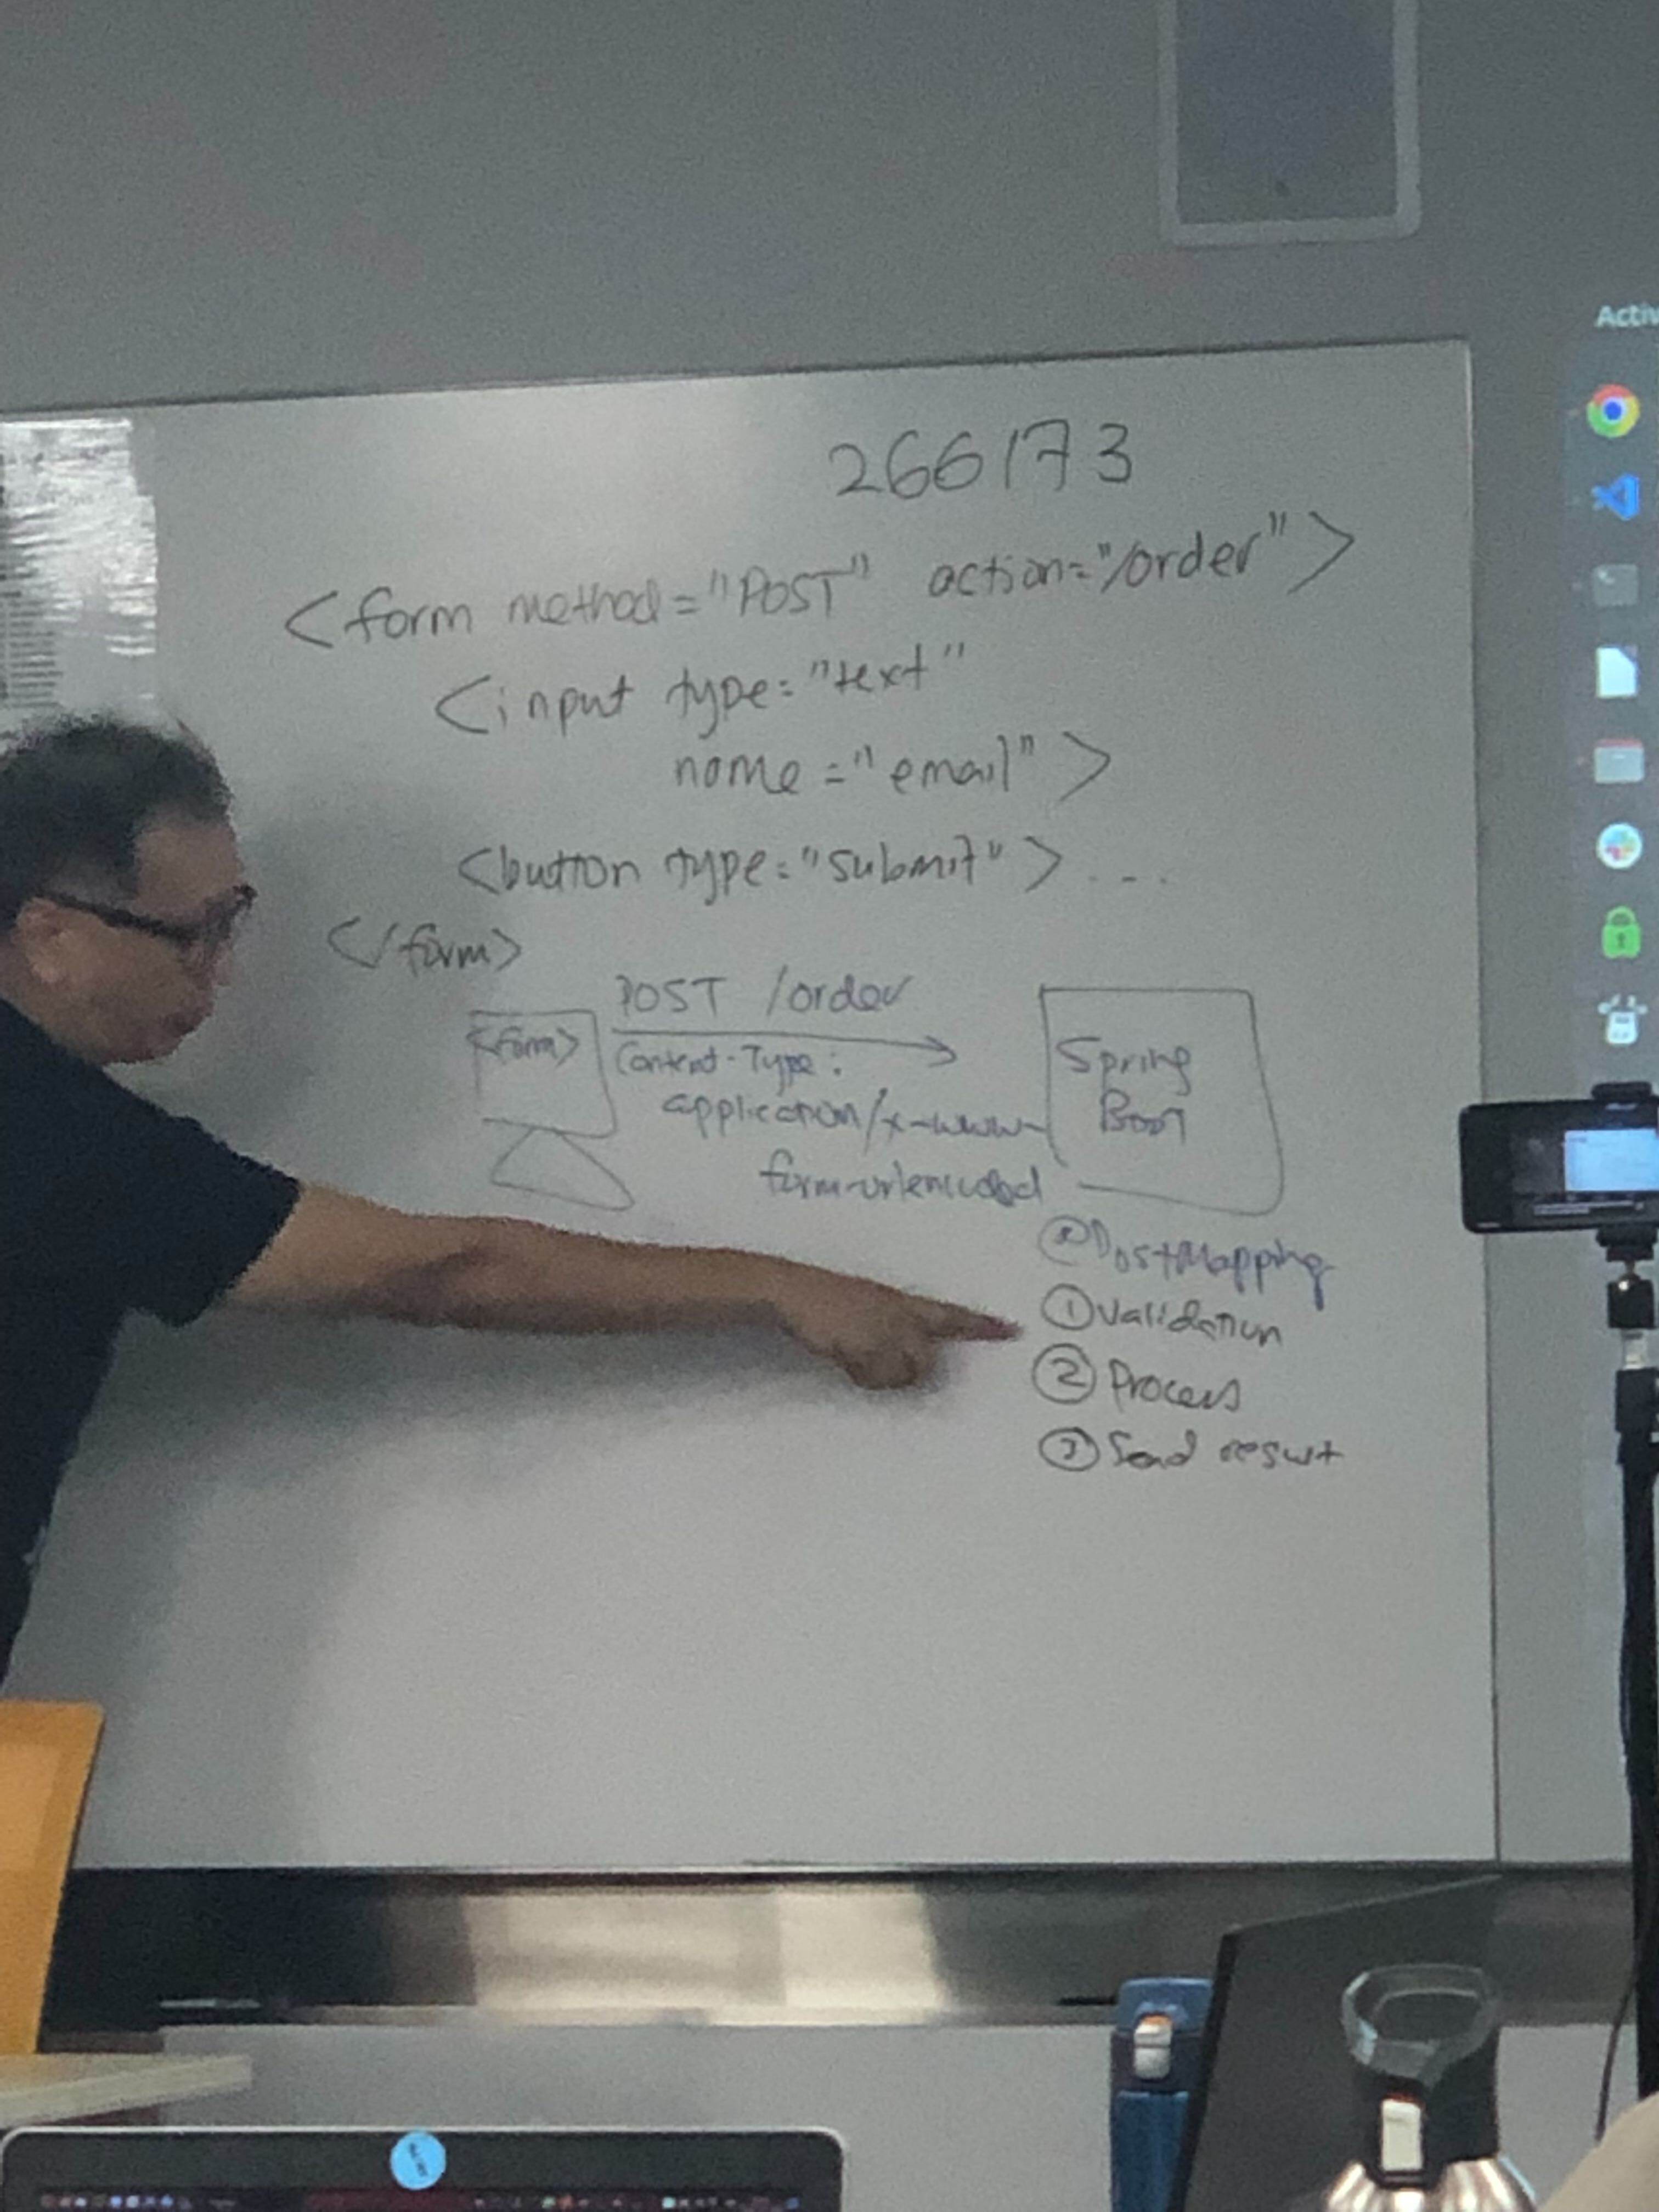 266173
<form method="POST" action="/order">
<input type="text"
name="email">
<button type="submit"> ...
</form>
POST /order
<form>
Content-Type:
application/x-www-
form-urlencoded
Spring
Boot
@PostMapping
① Validation
② Process
③ Send result
Activ